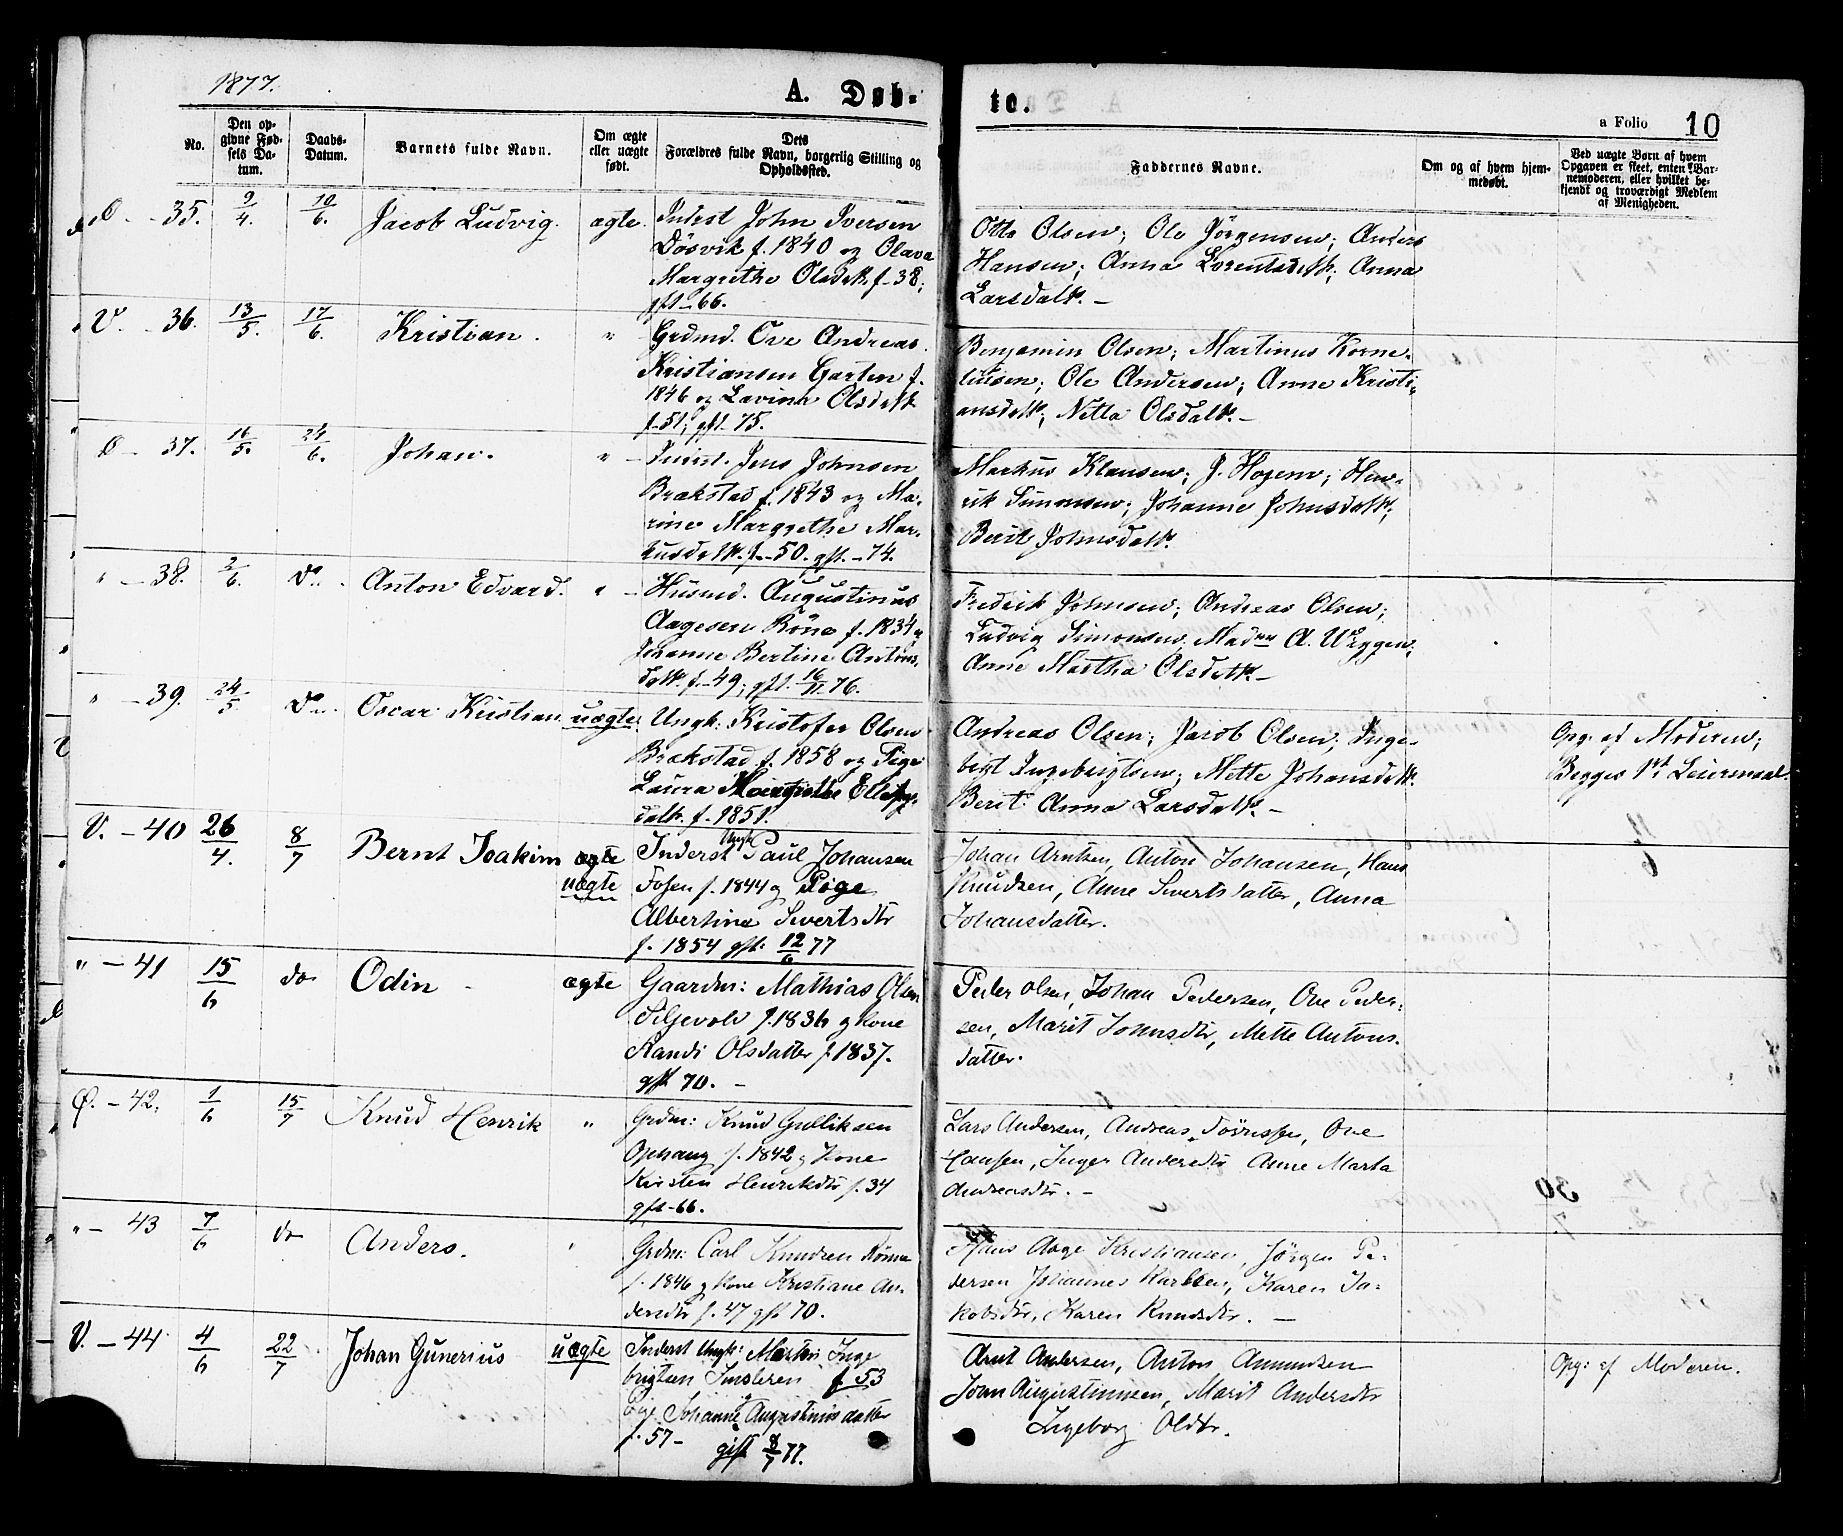 1877.
A. Døb-
te.
a Folio 10
No.
Den op-
givne Fød-
sels Da-
tum.
Daabs-
Datum.
Barnets fulde Navn.
Om ægte
eller uægte
født.
Dets
Forældres fulde Navn, borgerlig Stilling og
Opholdssted.
Faddernes Navne.
Om og af hvem hjem-
medøbt.
Ved uægte Børn af hvem
Opgaven er skeet, enten Bar-
nemoderen, eller hvilket be-
kjendt og troværdigt Medlem
af Menigheden.
35. 9/4. 10/6. Jacob Ludvig. ægte. Inderst John Iversen
Døsvik f. 1840 og Olava
Margrethe Olsdatr f. 38;
gft. 66.
Otto Olsen; Ole Jörgensen; Anders
Hansen; Anna Lorentsdatr; Anna
Larsdatr. –
V. 36. 13/5. 17/6. Kristian. " Grdmd. Ove Andreas
Kristiansen Garten f.
1846 og Lavina Olsdatr
f. 51; gft. 75.
Benjamin Olsen; Martinus Korne-
liusen; Ole Andersen; Anne Kristi-
ansdatr; Netta Olsdatr. –
37. 16/5. 24/6. Johan. " Inderst. Jens Johnsen
Brækstad f. 1843 og Ma-
rine Margrethe Mar-
kusdatr. f. 50. gft. 74.
Markus Klausen; J. Hogen; Hen-
rik Simonsen; Johanne Johnsdatr;
Berit Johnsdatr.
" 38. 2/6. do. Anton Edvard. " Husmd. Augustinus
Aagesen Röne f. 1834 og
Johanne Bertine Antons-
datr. f. 49; gft. 16/11 76.
Fredrik Johnsen; Andreas Olsen;
Ludvig Simonsen, Madm A. Wiggen;
Anne Martha Olsdatr. –
" 39. 24/5. do. Oscar Kristian. uægte. Ungk. Kristofer Olsen
Brækstad f. 1858 og Pige
Laura Margrethe
datr. f. 1851.
Andreas Olsen; Jacob Olsen; Inge-
brigt Ingebrigtsen; Mette Johansdatr.
Berit Anna Larsdatr. –
Opg. af Moderen;
Begges 1st Leiermaal.
V. – 40 26/4. 8/7 Bernt Joakim ægte
uægte
Inderst Ungk. Paul Johansen
Fosen f. 1844 og Pige
Albertine Sivertsdtr
f. 1854 gft. 12/6 77
Johan Arntsen, Anton Johansen, Hans
Knudsen, Anne Sivertsdatter, Anna
Johansdatter.
" – 41 15/6 do Odin – ægte Gaardm: Mathias Olsen
Seljevold f. 1836 og Kone
Randi Olsdatter f. 1837.
gft 70. –
Peder Olsen, Johan Pedersen, Ove Peder-
sen, Marit Johnsdtr, Mette Antons-
datter.
Ø. – 42. 1/6 15/7 Knud Henrik " Grdm: Knud Gulliksen
Ophaug f. 1842 og Kone
Kirsten Henriksdtr f. 34
gft – 66.
Lars Andersen, Andreas Tørrissen, Ove
Hansen, Inger Andersdtr Anne Marta
Andreasdtr. –
" – 43 7/6 do Anders. " Grdm: Carl Knudsen
f. 1846 og Kone Kristiane An-
dersdtr f. 47 gft 70.
Hans Aage Kristiansen, Jörgen Pe-
dersen Johannes Karlsen, Karen Ja-
kobsdtr, Karen Knudsdtr. –
V. – 44 4/6 22/7 Johan Gunerius uægte Inderst Ungk: Martin Inge
brigtsen f. 53
Pige Johanne Augustinusdatter
f. 57 –
gift 8/7 77.
Arnt Andersen, Anton Amundsen
Joan Augustinusen, Marit Andersdtr
Ingeborg Olsdtr.
Opg: af Moderen.